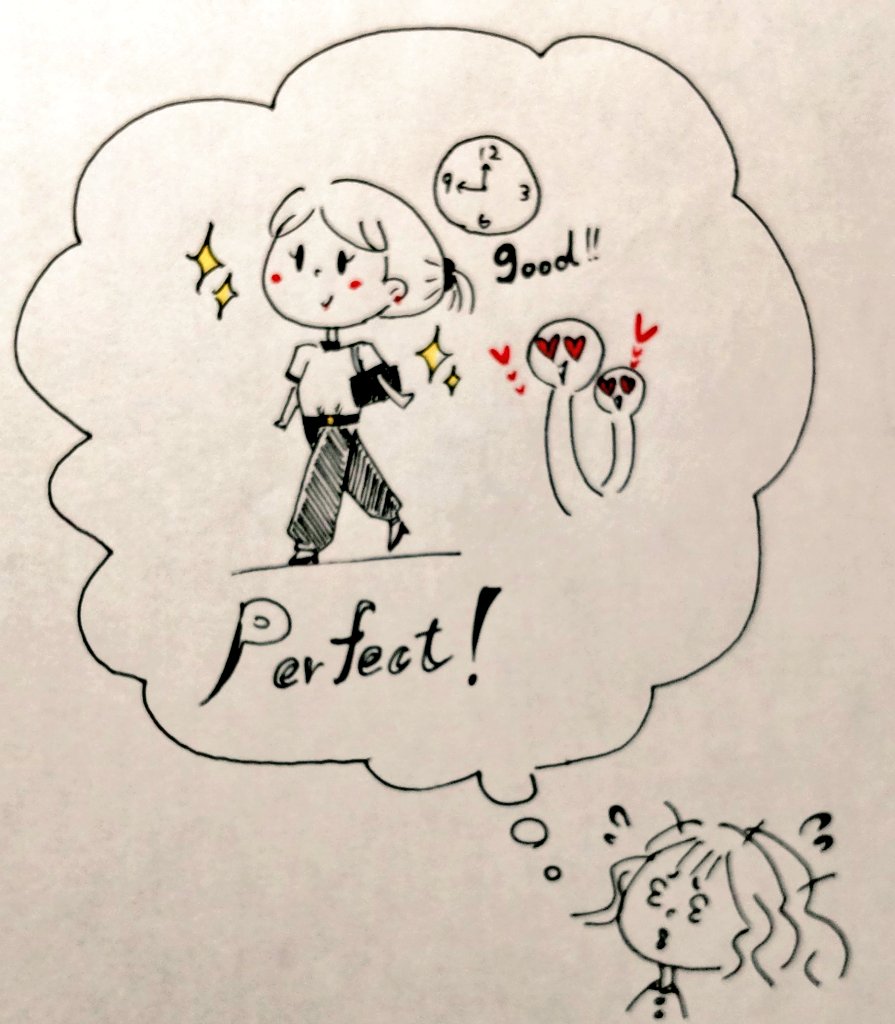 12
9 3
6
good!!
Perfect!